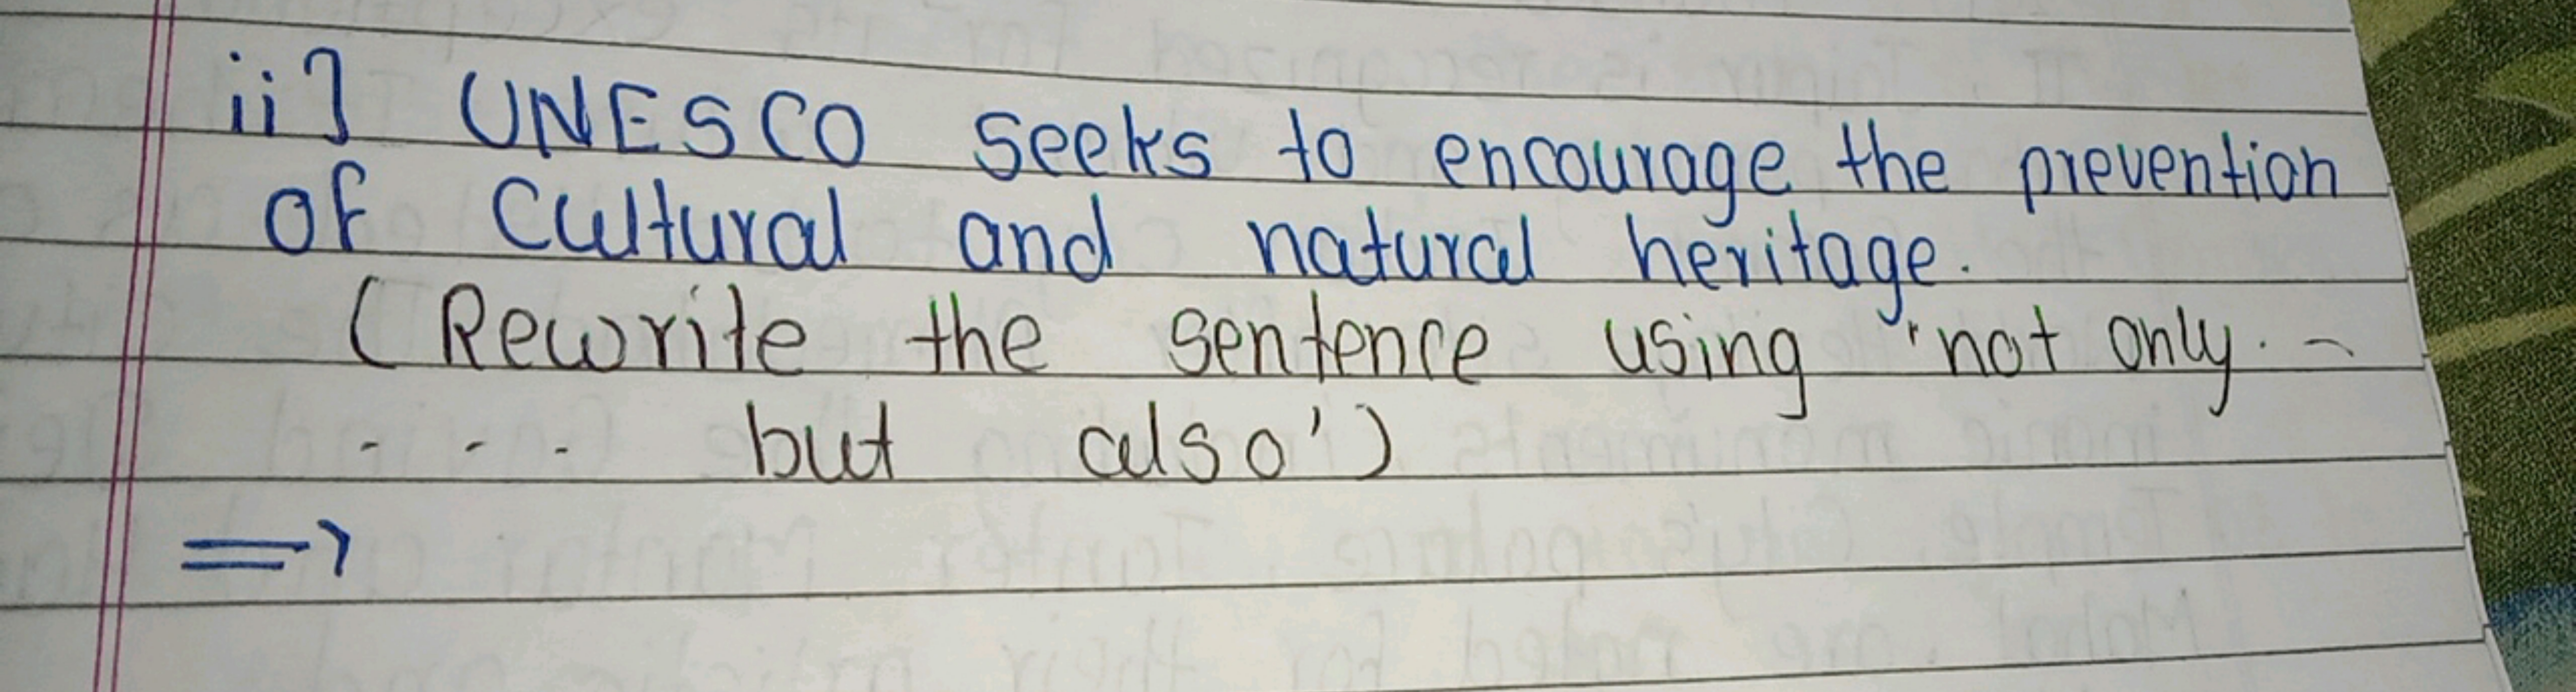 ii] UNESCO seeks to encourage the prevention
of cultural and natural heritage.
(Rewrite the sentence using 'not only. -
- - . but also')
⇒